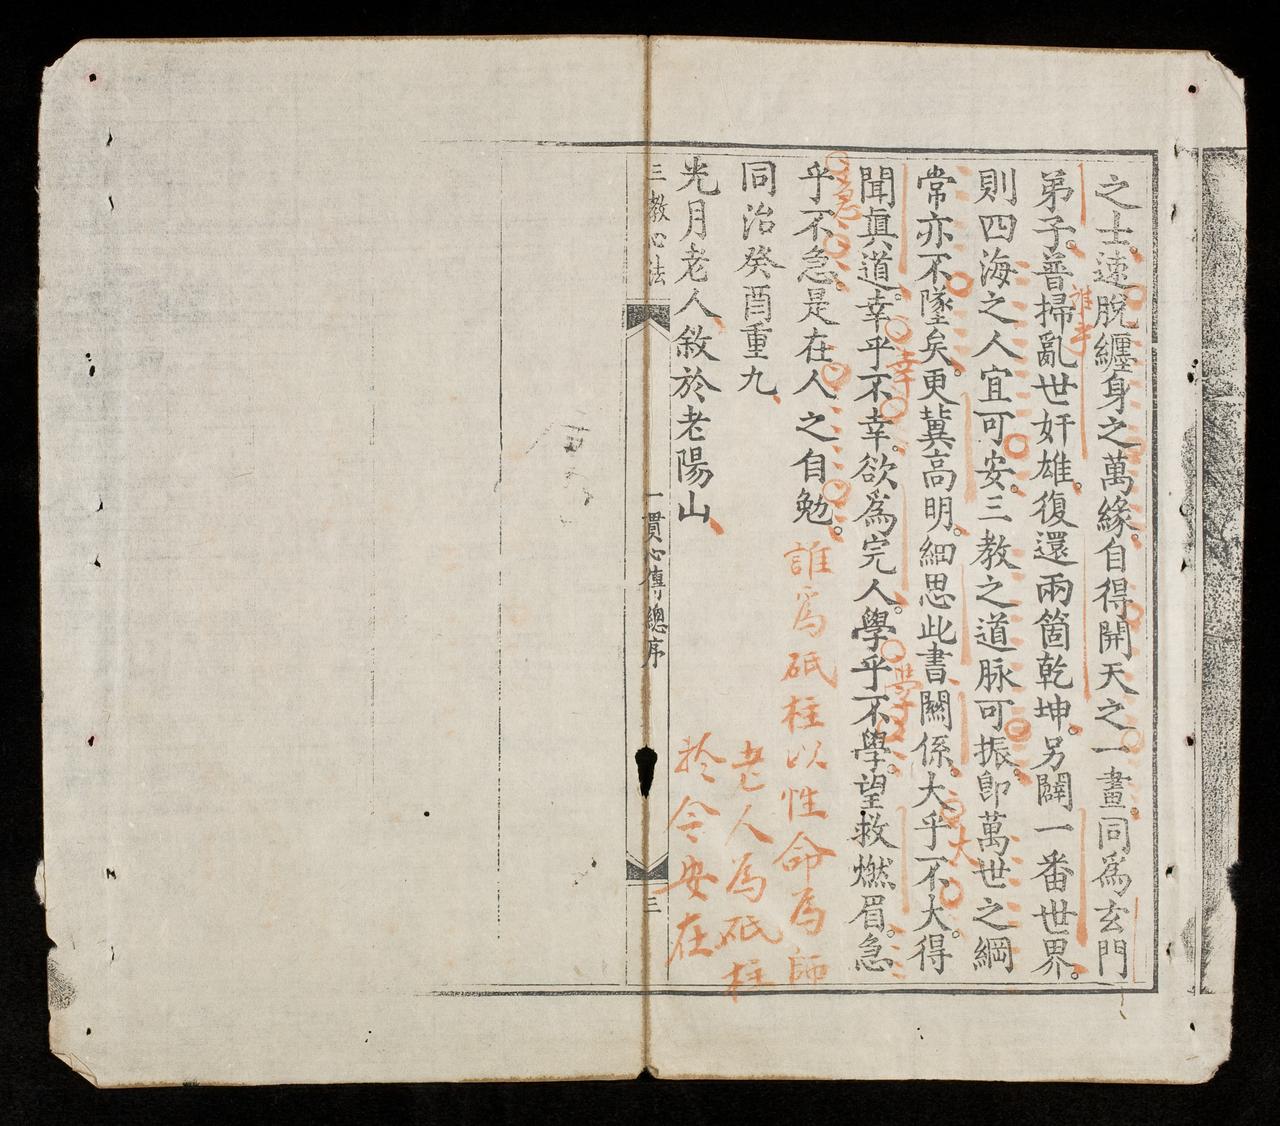 之士。速脫纏身之萬緣。自得開天之一畫。同爲玄門
弟子。普掃亂世奸雄。復還兩箇乾坤。另闢一番世界。
則四海之人宜可安。三教之道脉可振。卽萬世之綱
常亦不墜矣。更冀高明。細思此書關係。大乎不大。得
大
聞眞道。幸乎不幸。欲爲完人。學乎不學。望救燃眉。急
幸
學
乎不急。是在人之自勉。
急
誰爲砥柱以性命爲師
同治癸酉重九
老人為砥柱
光月老人敘於老陽山
於今安在
三教心法
一貫心傳總序
三